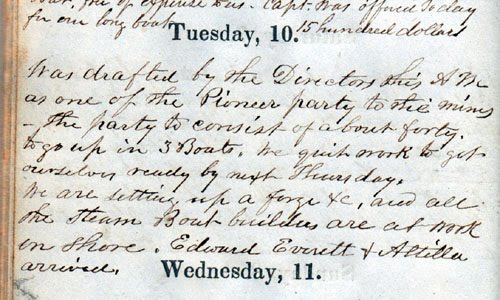 boat, free of expense to us. Capt. was offered today
for our long boat 15 hundred dollars
Tuesday, 10.
Was drafted by the Directors this A M
as one of the Pioneer party to the mines
- The party to consist of about forty.
to go up in 3 Boats. We quit work to get
ourselves ready by next Thursday.
We are setting up a forge &c, and all
the Steam Boat builders are at work
on shore. Edward Everett & Attilla
arrived.
Wednesday, 11.